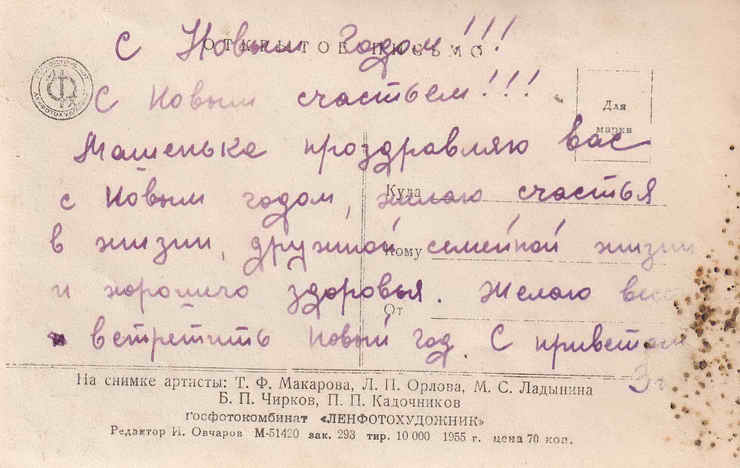 ОТКРЫТОЕ ПИСЬМО
С Новым Годом!!!
С Новым счастьем!!!
Для
марки
Машенька проздравляю вас
Куда
с Новым годом, желаю счастья
в жизни, дружной семейной жизни
Кому
и хорошего здоровья. Желаю
От
встретить Новый год. С приветом
На снимке артисты: Т. Ф. Макарова, Л. П. Орлова, М. С. Ладынина
Б. П. Чирков, П. П. Кадочников
Госфотокомбинат «ЛЕНФОТОХУДОЖНИК»
Редактор И. Овчаров М-51420 зак. 293 тир. 10 000 1955 г. цена 70 коп.